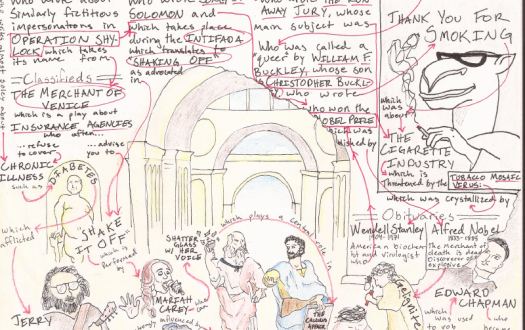 who wrote about
Similarly fictitious
impersonations in
OPERATION SHY-
LOCK which takes
its name from
SOLOMON and
which takes place
during the INTIFADA
which translates to
"SHAKING OFF"
as advocated
in
AWAY JURY, whose
main subject was
Who was called a
queer by WILLIAM F.
BUCKLEY, whose son
CHRISTOPHER BUCKL
who wrote
who won the
NOBEL PRIZE
which was
THANK YOU FOR
SMOKING
which
was
about
THE
CIGARETTE
INDUSTRY
which is
threatened by the TOBACCO MOSAIC
VIRUS:
which was crystallized by
Classifieds
THE MERCHANT OF
VENICE
which is a play about
INSURANCE AGENCIES
who often...
...refuse
to cover
...advise
you to
CHRONIC
ILLNESS
such as
DIABETES
which
afflicted
"SHAKE
IT OFF"
which was
performed
by
SHATTER
GLASS
W/ HER
VOICE
which plays a central role in
Obituaries
Wendell Stanley
1904-1971
American biochem-
ist and virologist
who
Alfred Nobel
1833-1896
The merchant of
death is dead
Discoverer of
explosive
JERRY
MARIAH
CAREY
who
can
influenced by
THE
CALLIAS
AFFAIR
EDWARD
CHAPMAN
which
was used
to rob
who